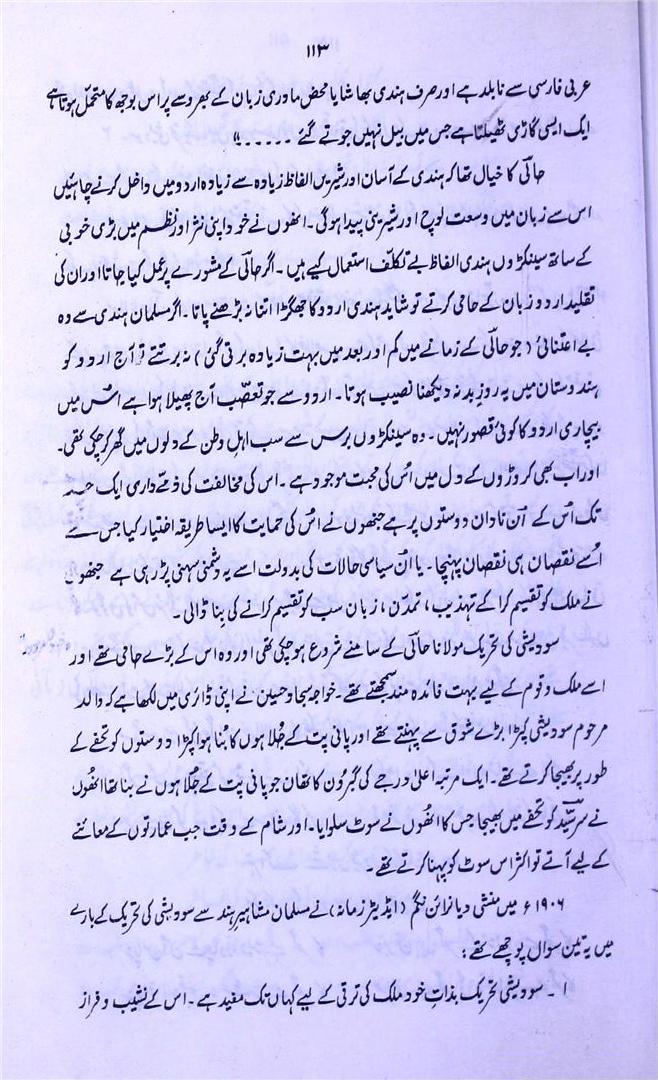 ۱۱۳
عربی فارسی سے نابلد ہے اور صرف ہندی بھاشا یا محض مادری زبان کے بھروسے پر اس بوجھ کا متحمل ہوتا ہے
ایک ایسی گاڑی ٹھیلتا ہے جس میں بیل نہیں جوتے گئے ......"
حالیؔ کا خیال تھا کہ ہندی کے آسان اور شیریں الفاظ زیادہ سے زیادہ اردو میں داخل کرنے چاہئیں
اس سے زبان میں وسعت لوچ اور شیرینی پیدا ہوگی۔ انھوں نے خود اپنی نثر اور نظم میں بڑی خوبی
کے ساتھ سینکڑوں ہندی الفاظ بے تکلف استعمال کیے ہیں۔ اگر حالیؔ کے مشورے پر عمل کیا جاتا اور ان کی
تقلید اردو زبان کے حامی کرتے تو شاید ہندی اردو کا جھگڑا اتنا نہ بڑھنے پاتا۔ اگر مسلمان ہندی سے وہ
بے اعتنائی (جو حالیؔ کے زمانے میں کم اور بعد میں بہت زیادہ برتی گئی) نہ برتتے تو آج اردو کو
ہندوستان میں یہ روزِ بد نہ دیکھنا نصیب ہوتا۔ اردو سے جو تعصّب آج پھیلا ہوا ہے اُس میں
بیچاری اردو کا کوئی قصور نہیں۔ وہ سینکڑوں برس سے سب اہلِ وطن کے دلوں میں گھر کر چکی تھی۔
اور اب بھی کروڑوں کے دل میں اُس کی محبت موجود ہے۔ اس کی مخالفت کی ذمّے داری ایک حد
تک اُس کے اُن نادان دوستوں پر ہے جنھوں نے اُس کی حمایت کا ایسا طریقہ اختیار کیا جس سے
اُسے نقصان ہی نقصان پہنچا۔ یا اُن سیاسی حالات کی بدولت اسے یہ دشمنی سہنی پڑ رہی ہے جنھوں
نے ملک کو تقسیم کرا کے تہذیب، تمدّن، زبان سب کو تقسیم کرانے کی بنا ڈالی۔
سودیشی کی تحریک مولانا حالیؔ کے سامنے شروع ہو چکی تھی اور وہ اس کے بڑے حامی تھے اور
اسے ملک و قوم کے لیے بہت فائدہ مند سمجھتے تھے۔ خواجہ سجاد حسین نے اپنی ڈائری میں لکھا ہے کہ والد
مرحوم سودیشی کپڑا بڑے شوق سے پہنتے تھے اور پانی پت کے جُلاہوں کا بُنا ہوا کپڑا دوستوں کو تحفے کے
طور پر بھیجا کرتے تھے۔ ایک مرتبہ اعلیٰ درجے کی گبرون کا تھان جو پانی پت کے جُلاہوں نے بنا تھا انھُوں
نے سرسیّد کو تحفے میں بھیجا جس کا انھُوں نے سوٹ سلوایا۔ اور شام کے وقت جب عمارتوں کے معائنے
کے لیے آتے تو اکثر اس سوٹ کو پہنا کرتے تھے۔
۱۹۰۶ء میں منشی دیا نرائن نگم (ایڈیٹر زمانہ) نے مسلمان مشاہیرِ ہند سے سودیشی کی تحریک کے بارے
میں یہ تین سوال پوچھے تھے:
۱۔ سودیشی تحریک بذاتِ خود ملک کی ترقی کے لیے کہاں تک مفید ہے۔ اس کے نشیب و فراز